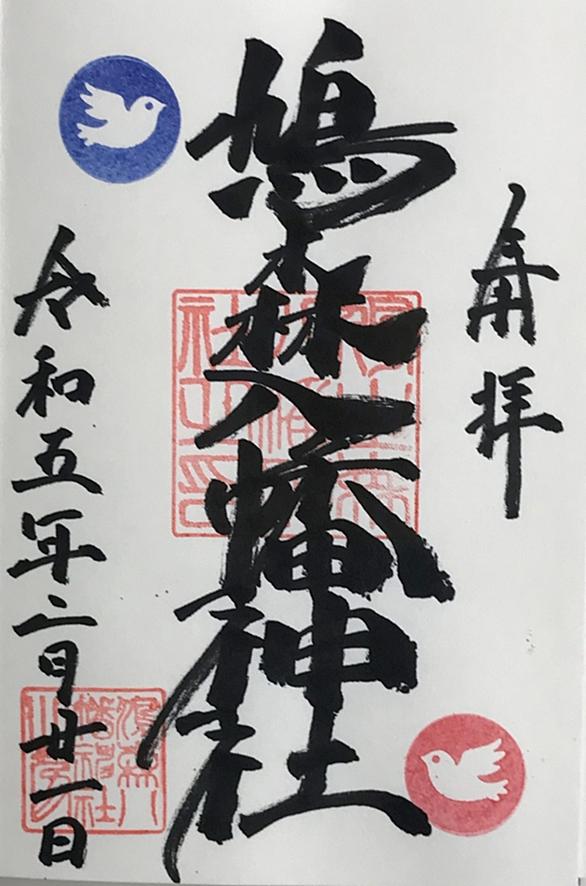 奉拝
鳩森八幡神社
令和五年二月廿一日